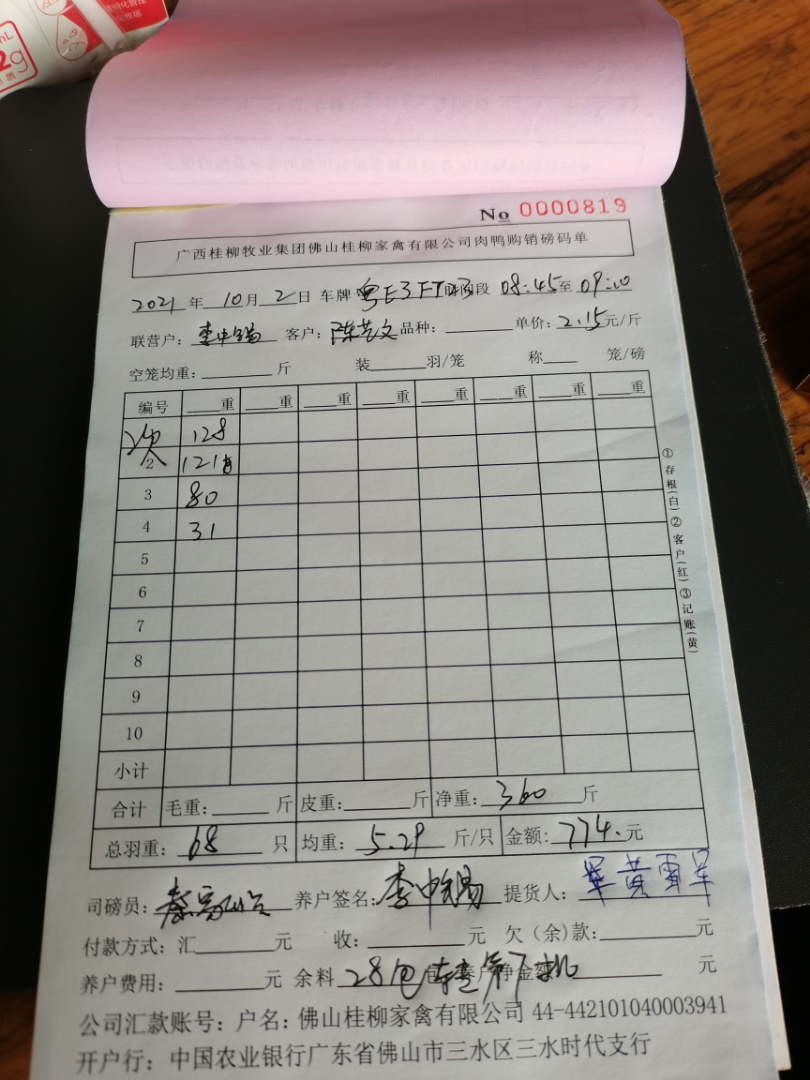 No 0000819
广西桂柳牧业集团佛山桂柳家禽有限公司肉鸭购销磅码单
2021 年 10 月 2 日 车牌 粤E3 时间段 08:45 至 09:10
联营户: 李中锡 客户: 陈艺文 品种: 单价: 2.15 元/斤
空笼均重: 斤 装 羽/笼 称 笼/磅
编号 重 重 重 重 重 重 重 重
128
2 121
3 80
4 31
5
6
7
8
9
10
小计
合计 毛重: 斤 皮重: 斤 净重: 360 斤
总羽重: 68 只 均重: 5.29 斤/只 金额: 774. 元
司磅员: 养户签名: 李中锡 提货人: 黄雪军
付款方式: 汇 元 收: 元 欠(余)款: 元
养户费用: 元 余料 28包 养户净金额 元
公司汇款账号: 户名: 佛山桂柳家禽有限公司 44-442101040003941
开户行: 中国农业银行广东省佛山市三水区三水时代支行
①存根(白)②客户(红)③记账(黄)